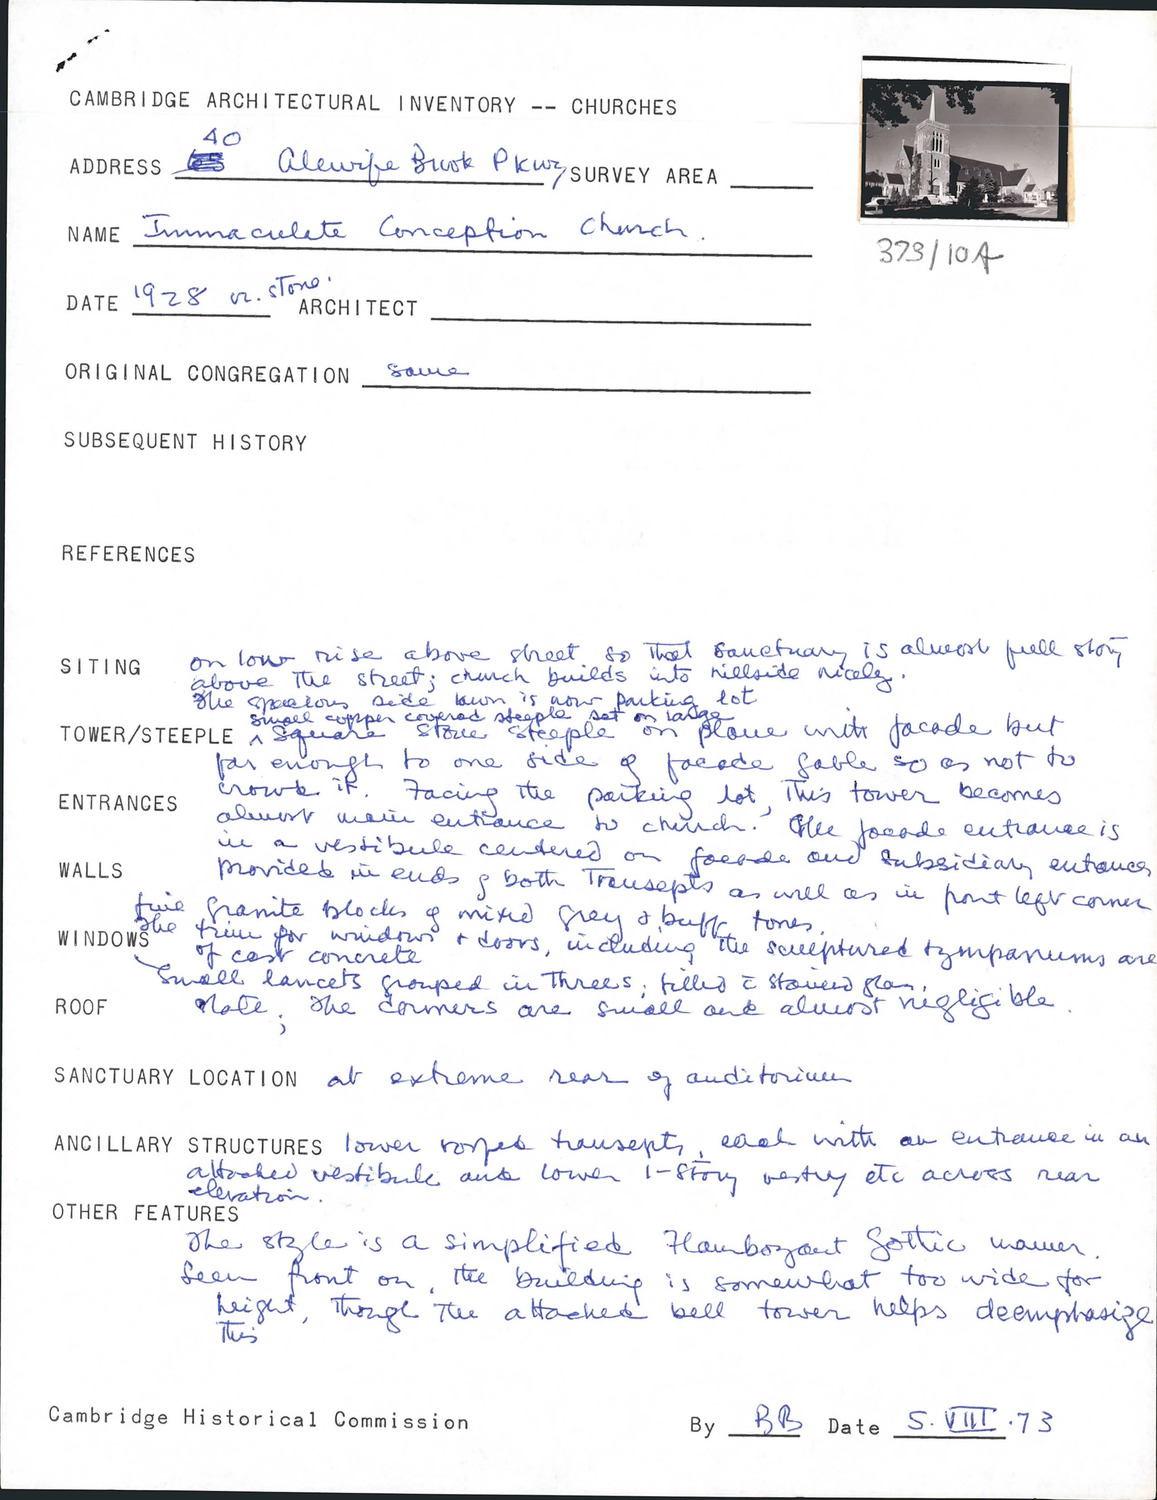 CAMBRIDGE ARCHITECTURAL INVENTORY -- CHURCHES
40
ADDRESS 65 Alewife Brook Pkwy SURVEY AREA
NAME Immaculate Conception Church.
373/10A
DATE 1928 cr. stone. ARCHITECT
ORIGINAL CONGREGATION same
SUBSEQUENT HISTORY
REFERENCES
SITING on low rise above street so that sanctuary is almost full story
above the street; church builds into hillside nicely.
The spacious side lawn is now parking lot
small copper covered steeple set on large
TOWER/STEEPLE ^ square stone steeple on plane with facade but
far enough to one side of facade gable so as not to
crowd it. Facing the parking lot, this tower becomes
ENTRANCES almost main entrance to church. The facade entrance is
in a vestibule centered on facade and subsidiary entrances
WALLS provided in ends of both transepts as well as in front left corner
fine granite blocks of mixed grey & buff tones.
The trim for windows & doors, including the sculptured tympanums are
WINDOWS of cast concrete
Small lancets grouped in threes; filled c̄ stained glass.
ROOF slate; The dormers are small and almost negligible.
SANCTUARY LOCATION at extreme rear of auditorium
ANCILLARY STRUCTURES lower roofed transepts, each with an entrance in an
attached vestibule and lower 1-story vestry etc across rear
elevation.
OTHER FEATURES
The style is a simplified Flamboyant Gothic manner.
Seen front on, the building is somewhat too wide for
height, though the attached bell tower helps deemphasize
this
Cambridge Historical Commission By BB Date 5.VIII.73